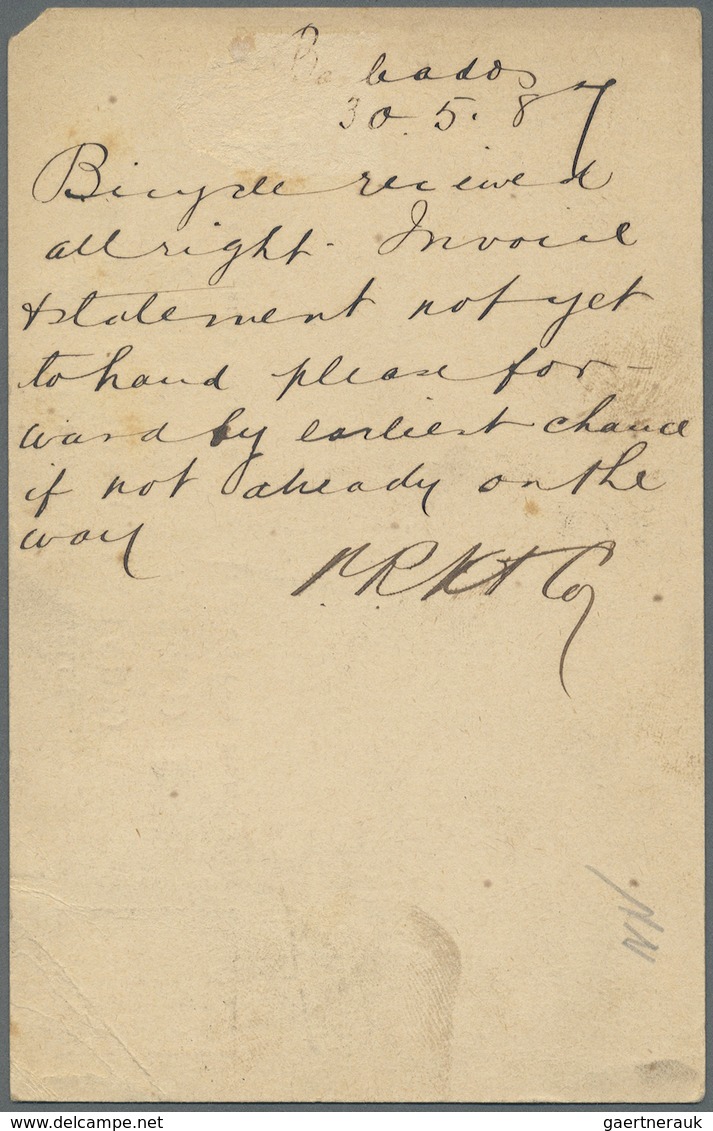 Barbados
30. 5. 87
Bicycle received
all right. Invoice
& statement not yet
to hand please for-
ward by earliest chance
if not already on the
way
& Co
NN
www.delcampe.net
gaertnerauk